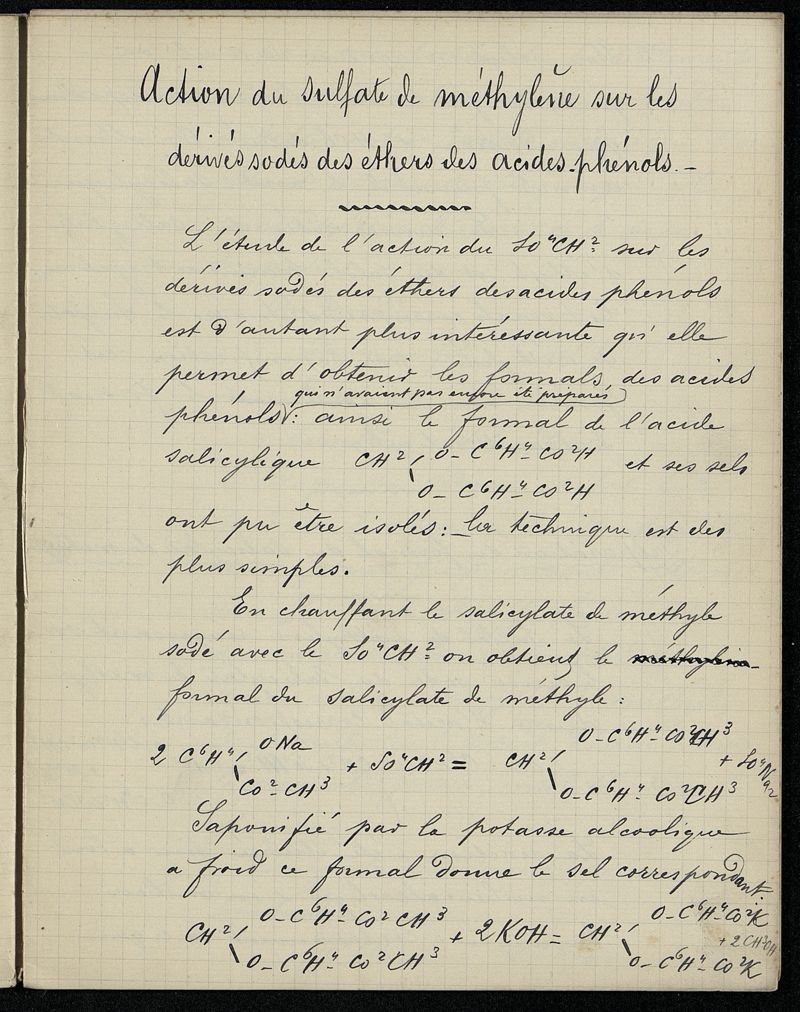 Action du sulfate de méthylène sur les
dérivés sodés des éthers des acides-phénols.-
L'étude de l'action du SO⁴CH² sur les
dérivés sodés des éthers des acides phénols
est d'autant plus intéressante qu'elle
permet d'obtenir les formals des acides
qui n'avaient pas encore été préparés
phénols: ainsi le formal de l'acide
salicylique CH² O-C⁶H⁴-CO²H et ses sels
O-C⁶H⁴-CO²H
ont pu être isolés:-la technique est des
plus simples.
En chauffant le salicylate de méthyle
sodé avec le SO⁴CH² on obtient le
formal du salicylate de méthyle:
O-C⁶H⁴-CO²CH³
2 C⁶H⁴ ONa + SO⁴CH² = CH² + SO⁴Na²
CO²-CH³ O-C⁶H⁴-CO²CH³
Saponifié par la potasse alcoolique
a froid ce formal donne le sel correspondant:
CH² O-C⁶H⁴-CO²CH³ + 2KOH = CH² O-C⁶H⁴-CO²K
+ 2CH³OH
O-C⁶H⁴-CO²CH³ O-C⁶H⁴-CO²K